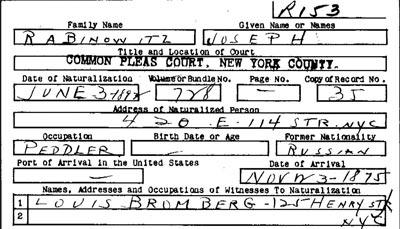 R153
Family Name Given Name or Names
RABINOWITZ JOSEPH
Title and Location of Court
COMMON PLEAS COURT, NEW YORK COUNTY.
Date of Naturalization Volume or Bundle No. Page No. Copy of Record No.
JUNE 3-1892 728 — 35
Address of Naturalized Person
420 E. 114 STR. NYC
Occupation Birth Date or Age Former Nationality
PEDDLER — RUSSIAN
Port of Arrival in the United States Date of Arrival
— NOV 23-1875
Names, Addresses and Occupations of Witnesses To Naturalization
1 LOUIS BROMBERG-125 HENRY STR
2 NYC